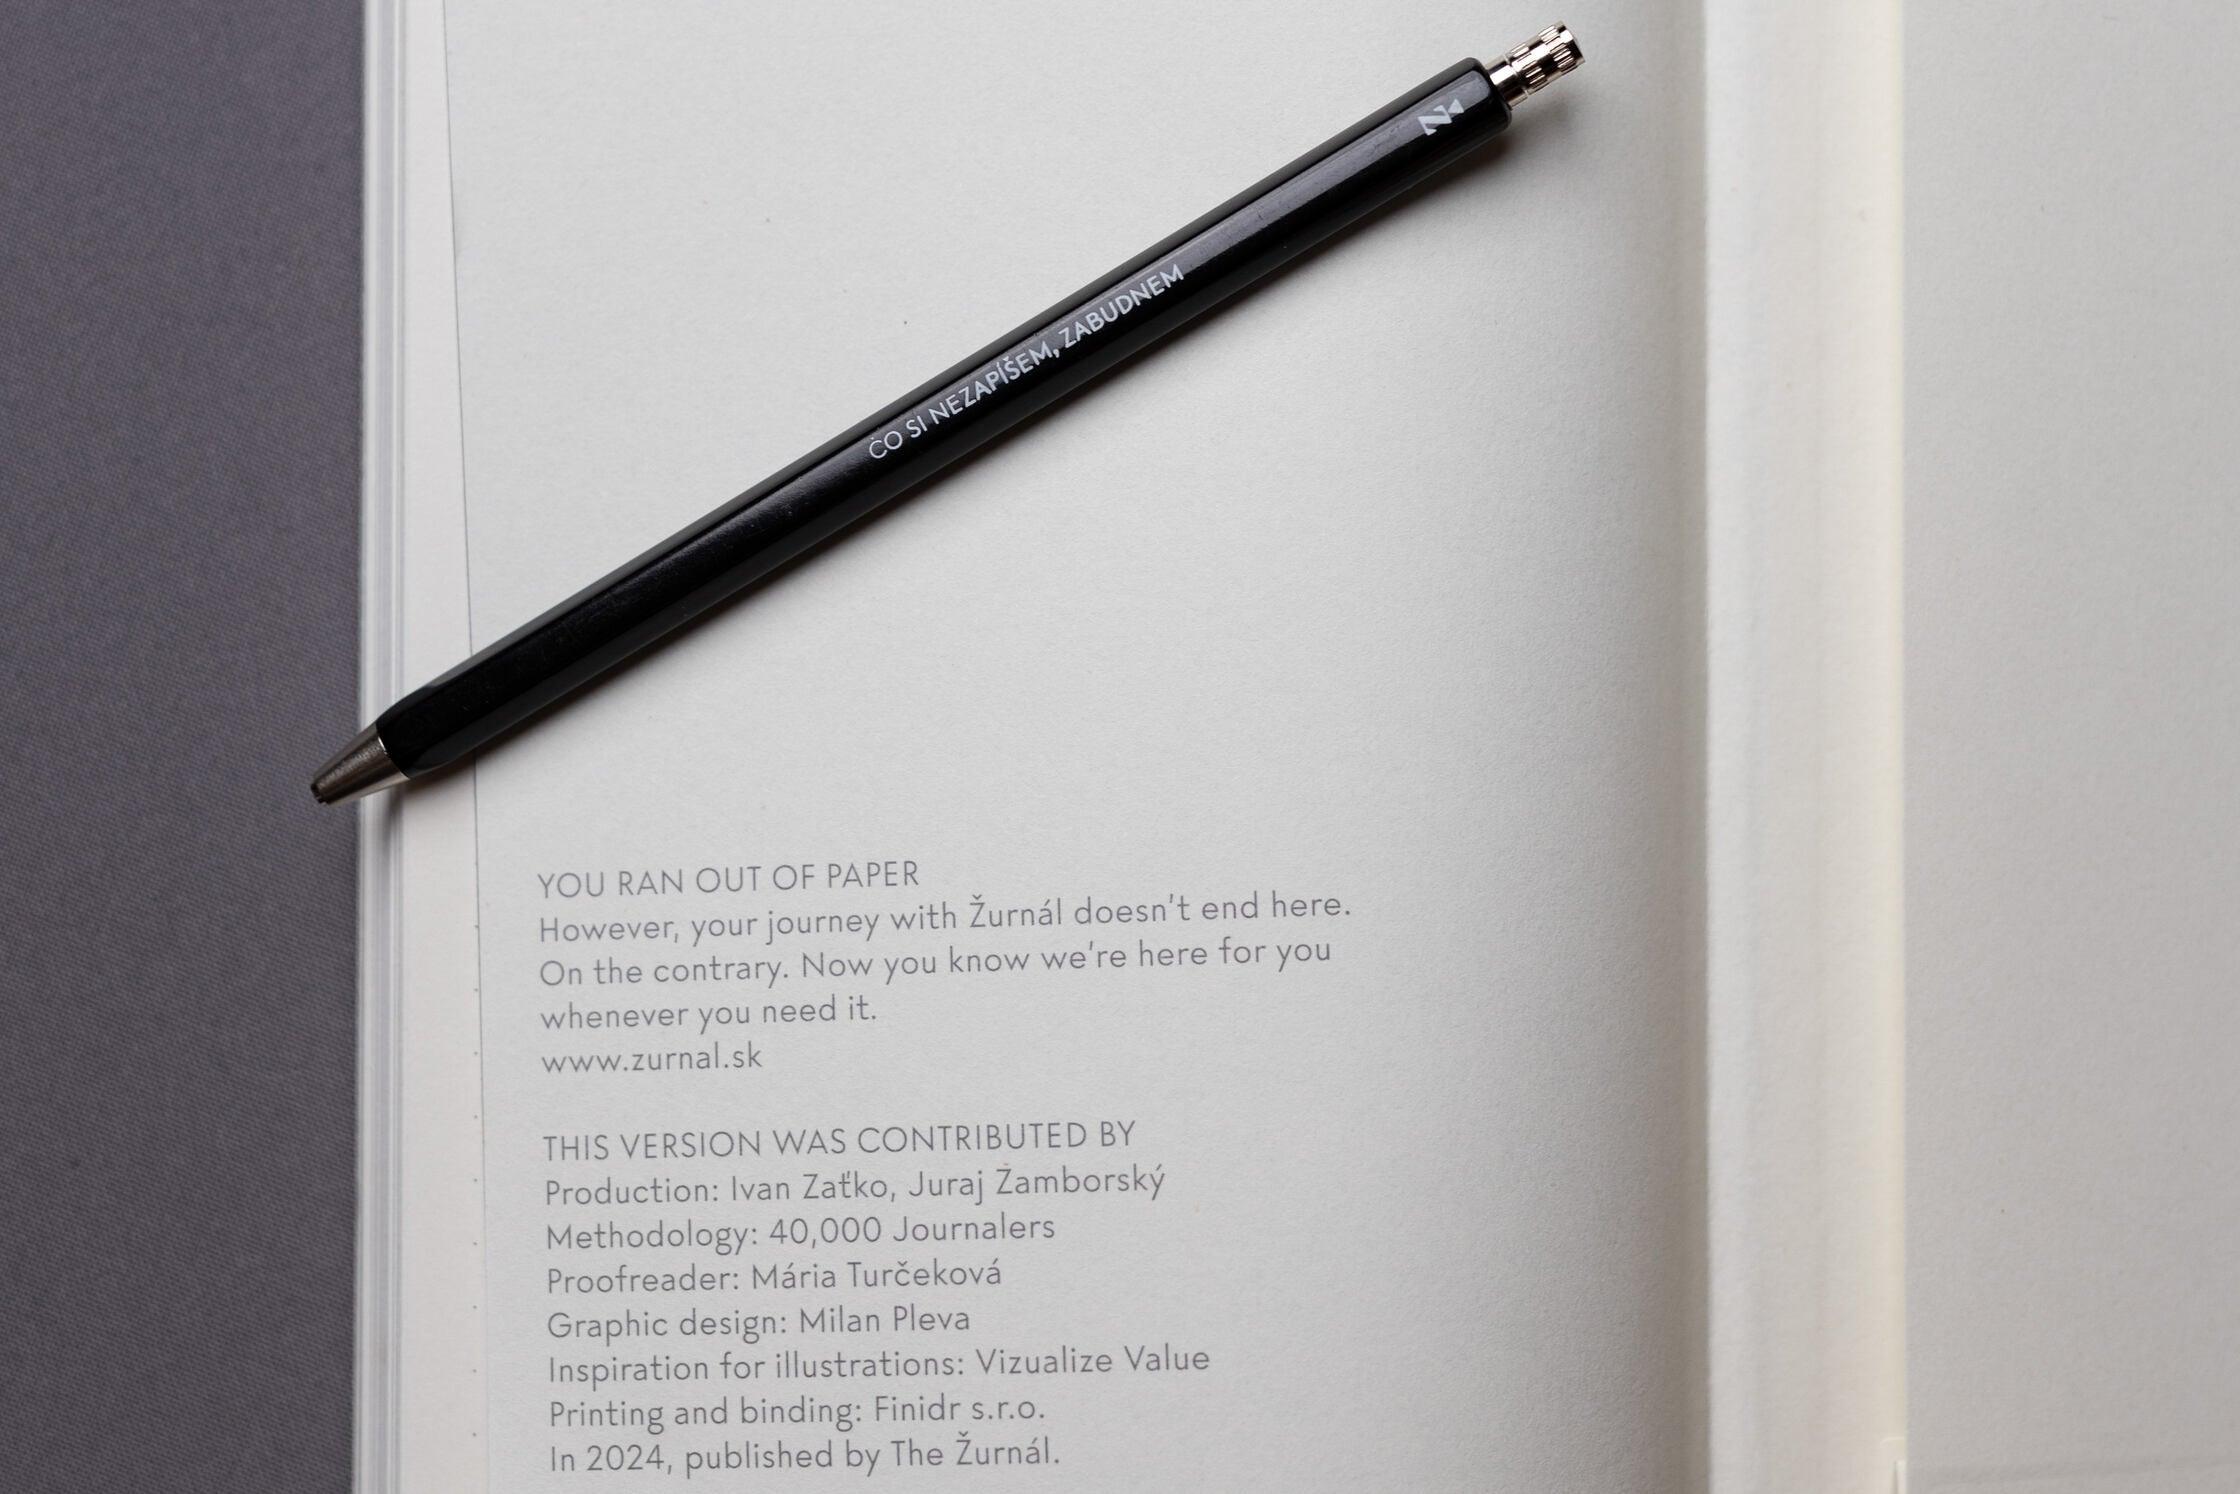 ČO SI NEZAPÍŠEM, ZABUDNEM
YOU RAN OUT OF PAPER
However, your journey with Žurnál doesn't end here.
On the contrary. Now you know we're here for you
whenever you need it.
www.zurnal.sk
THIS VERSION WAS CONTRIBUTED BY
Production: Ivan Zaťko, Juraj Žamborský
Methodology: 40,000 Journalers
Proofreader: Mária Turčeková
Graphic design: Milan Pleva
Inspiration for illustrations: Vizualize Value
Printing and binding: Finidr s.r.o.
In 2024, published by The Žurnál.